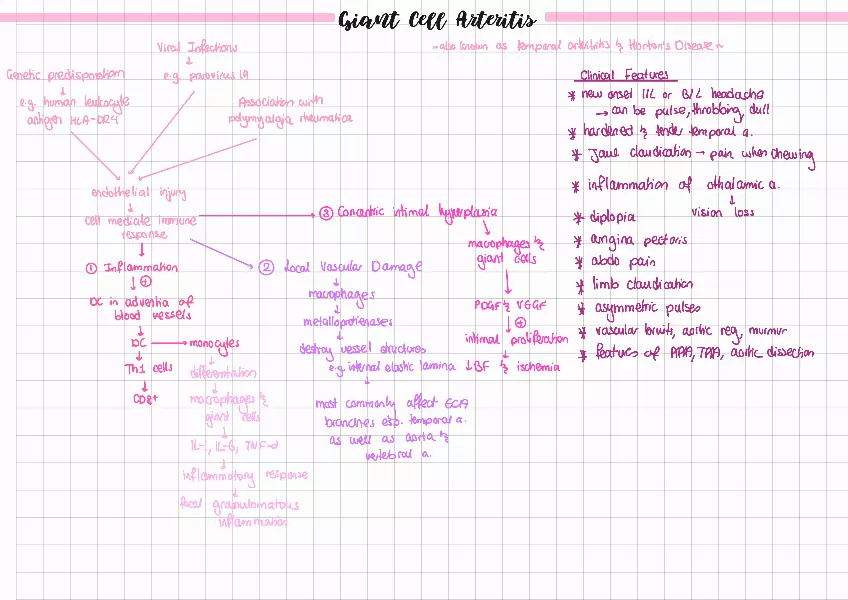 Giant Cell Arteritis
~also known as temporal arteritis & Horton's Disease~
Viral Infections
↓
e.g. parovirus 19
Genetic predisposition
↓
e.g. human leukocyte
antigen HLA-DR4
Association with
polymyalgia rheumatica
endothelial injury
↓
cell mediate immune
response
① Inflammation
↓ ⊕
DC in adventia of
blood vessels
↓
DC → monocytes
↓
Th1 cells
↓
CD8+
differentiation
↓
macrophages &
giant cells
↓
IL-1, IL-6, TNF-α
↓
inflammatory response
↓
focal granulomatous
inflammation
② Local Vascular Damage
↓
macrophages
↓
metalloprotienases
↓
destroy vessel structures
e.g. internal elastic lamina
↓
most commonly affect ECA
branches esp. temporal a.
as well as aorta &
vertebral a.
③ Concentric intimal hyperplasia
↓
macrophages &
giant cells
↓
PDGF & VEGF
↓ ⊕
intimal proliferation
↓
↓BF & ischemia
Clinical Features
* new onset U/L or B/L headache
→ can be pulse, throbbing, dull
* hardened & tender temporal a.
* Jaw claudication → pain when chewing
* inflammation of othalamic a.
↓
vision loss
* diplopia
* angina pectoris
* abdo pain
* limb claudication
* asymmetric pulses
* vascular bruits, aortic reg, murmur
* features of AAA, TAA, aortic dissection